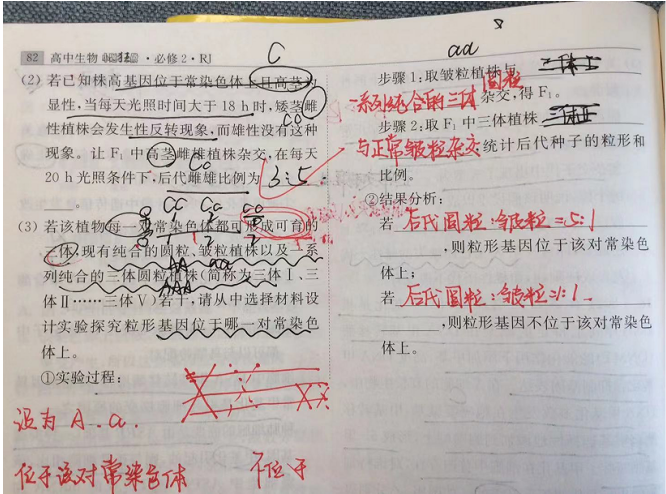 82 高中生物 · 必修2 · RJ
C
ad
(2) 若已知株高基因位于常染色体上且高茎为
显性,当每天光照时间大于18 h时,矮茎雌
性植株会发生性反转现象,而雄性没有这种
现象。让F₁中高茎雌雄植株杂交,在每天
20 h光照条件下,后代雌雄比例为 3:5
。
(3) 若该植物每一对常染色体都可形成可育的
三体,现有纯合的圆粒、皱粒植株以及一系
列纯合的三体圆粒植株(简称为三体Ⅰ、三
体Ⅱ……三体Ⅴ)若干,请从中选择材料设
计实验探究粒形基因位于哪一对常染色
体上。
AA aa
AAA
①实验过程:
设为 A、a.
位于该对常染色体 不位于
步骤1:取皱粒植株与 圆粒
一系列纯合的三体 杂交,得F₁。
步骤2:取F₁中三体植株
与正常皱粒杂交 统计后代种子的粒形和
比例。
②结果分析:
若 后代圆粒:皱粒=5:1
,则粒形基因位于该对常染色
体上;
若 后代圆粒:皱粒=1:1
,则粒形基因不位于该对常染色
体上。